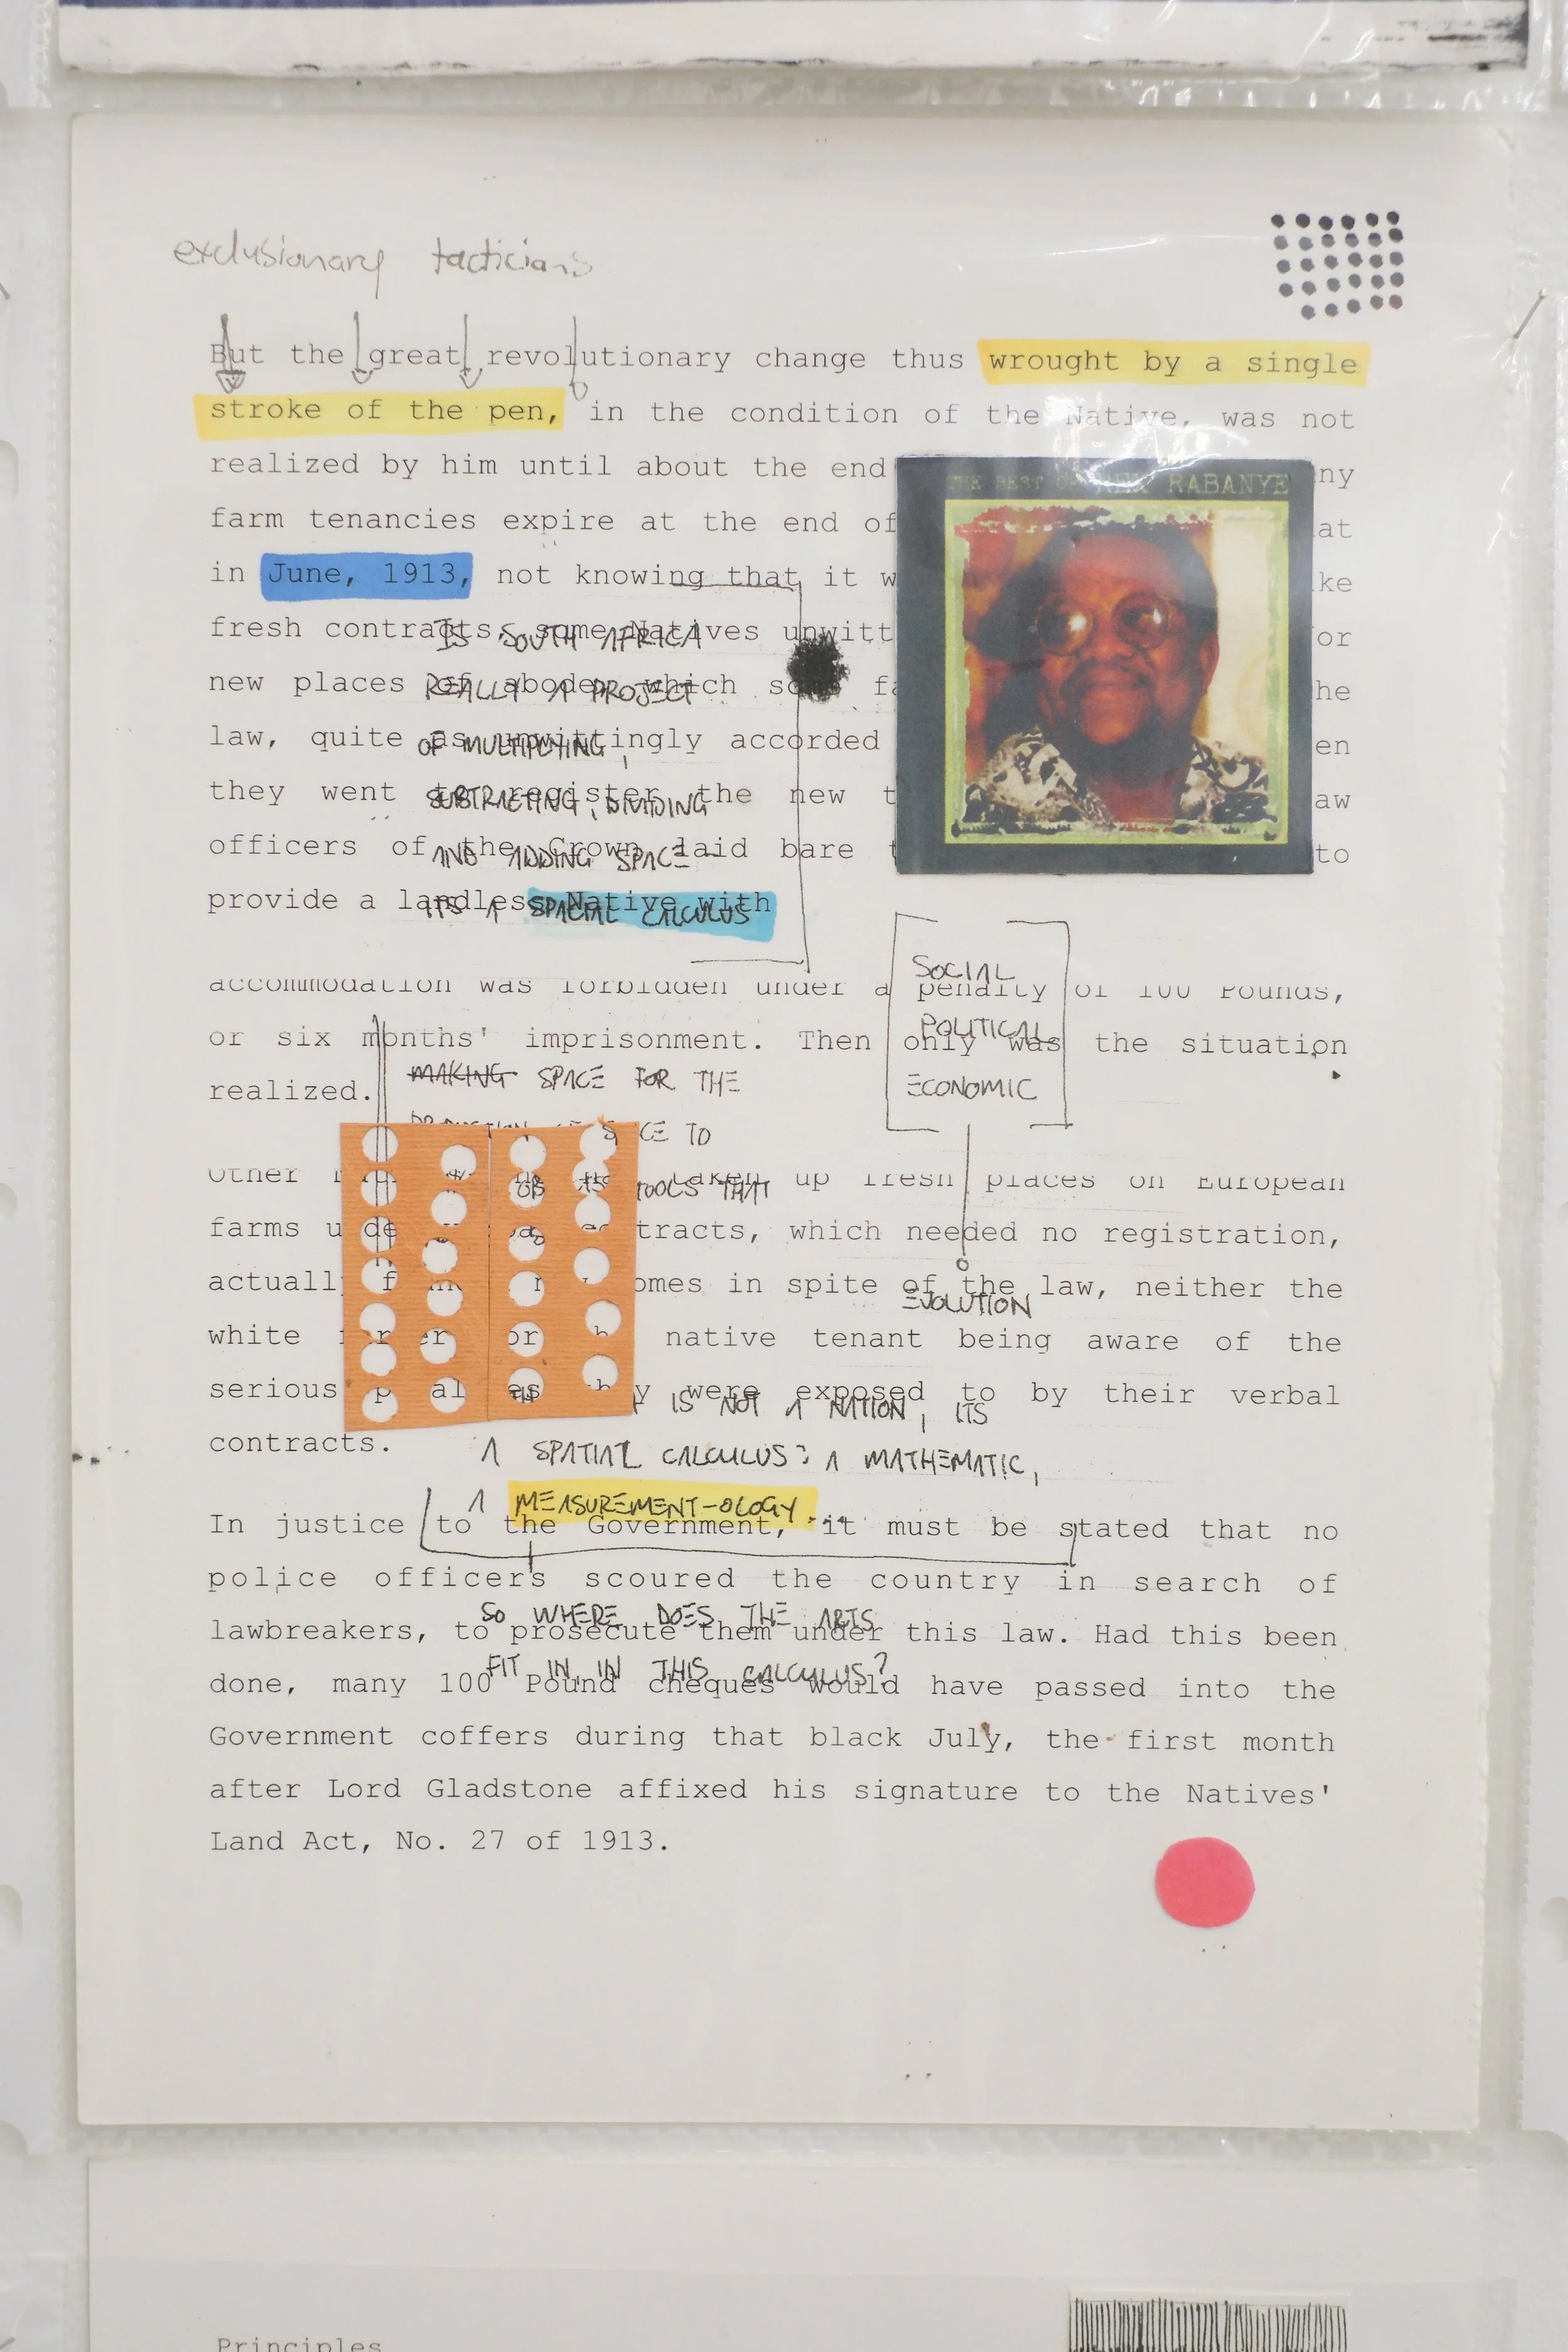 exclusionary tacticians
But the great revolutionary change thus wrought by a single
stroke of the pen, in the condition of the Native, was not
realized by him until about the end
ny
farm tenancies expire at the end of
at
in June, 1913, not knowing that it w
ke
fresh contracts, some Natives unwitt
or
new places of abode, which some fa
he
law, quite as unwittingly accorded
en
they went to register the new t
aw
officers of the Crown laid bare t
to
provide a landless Native with
THE BEST OF RABANYE
IS SOUTH AFRICA
REALLY A PROJECT
OF MULTIPLYING,
SUBTRACTING, DIVIDING
AND ADDING SPACE -
ITS A SPATIAL CALCULUS
accommodation was forbidden under a penalty of 100 Pounds,
or six months' imprisonment. Then only was the situation
realized.
SOCIAL
POLITICAL
ECONOMIC
EVOLUTION
MAKING SPACE FOR THE
TO
TOOLS THAT
Other taken up fresh places on European
farms tracts, which needed no registration,
omes in spite of the law, neither the
white native tenant being aware of the
serious they were exposed to by their verbal
contracts.
IS NOT A NATION, ITS
A SPATIAL CALCULUS: A MATHEMATIC,
A MEASUREMENT-OLOGY...
In justice to the Government, it must be stated that no
police officers scoured the country in search of
lawbreakers, to prosecute them under this law. Had this been
done, many 100 Pound cheques would have passed into the
Government coffers during that black July, the first month
after Lord Gladstone affixed his signature to the Natives'
Land Act, No. 27 of 1913.
SO WHERE DOES THE ARTS
FIT IN, IN THIS CALCULUS?
Principles